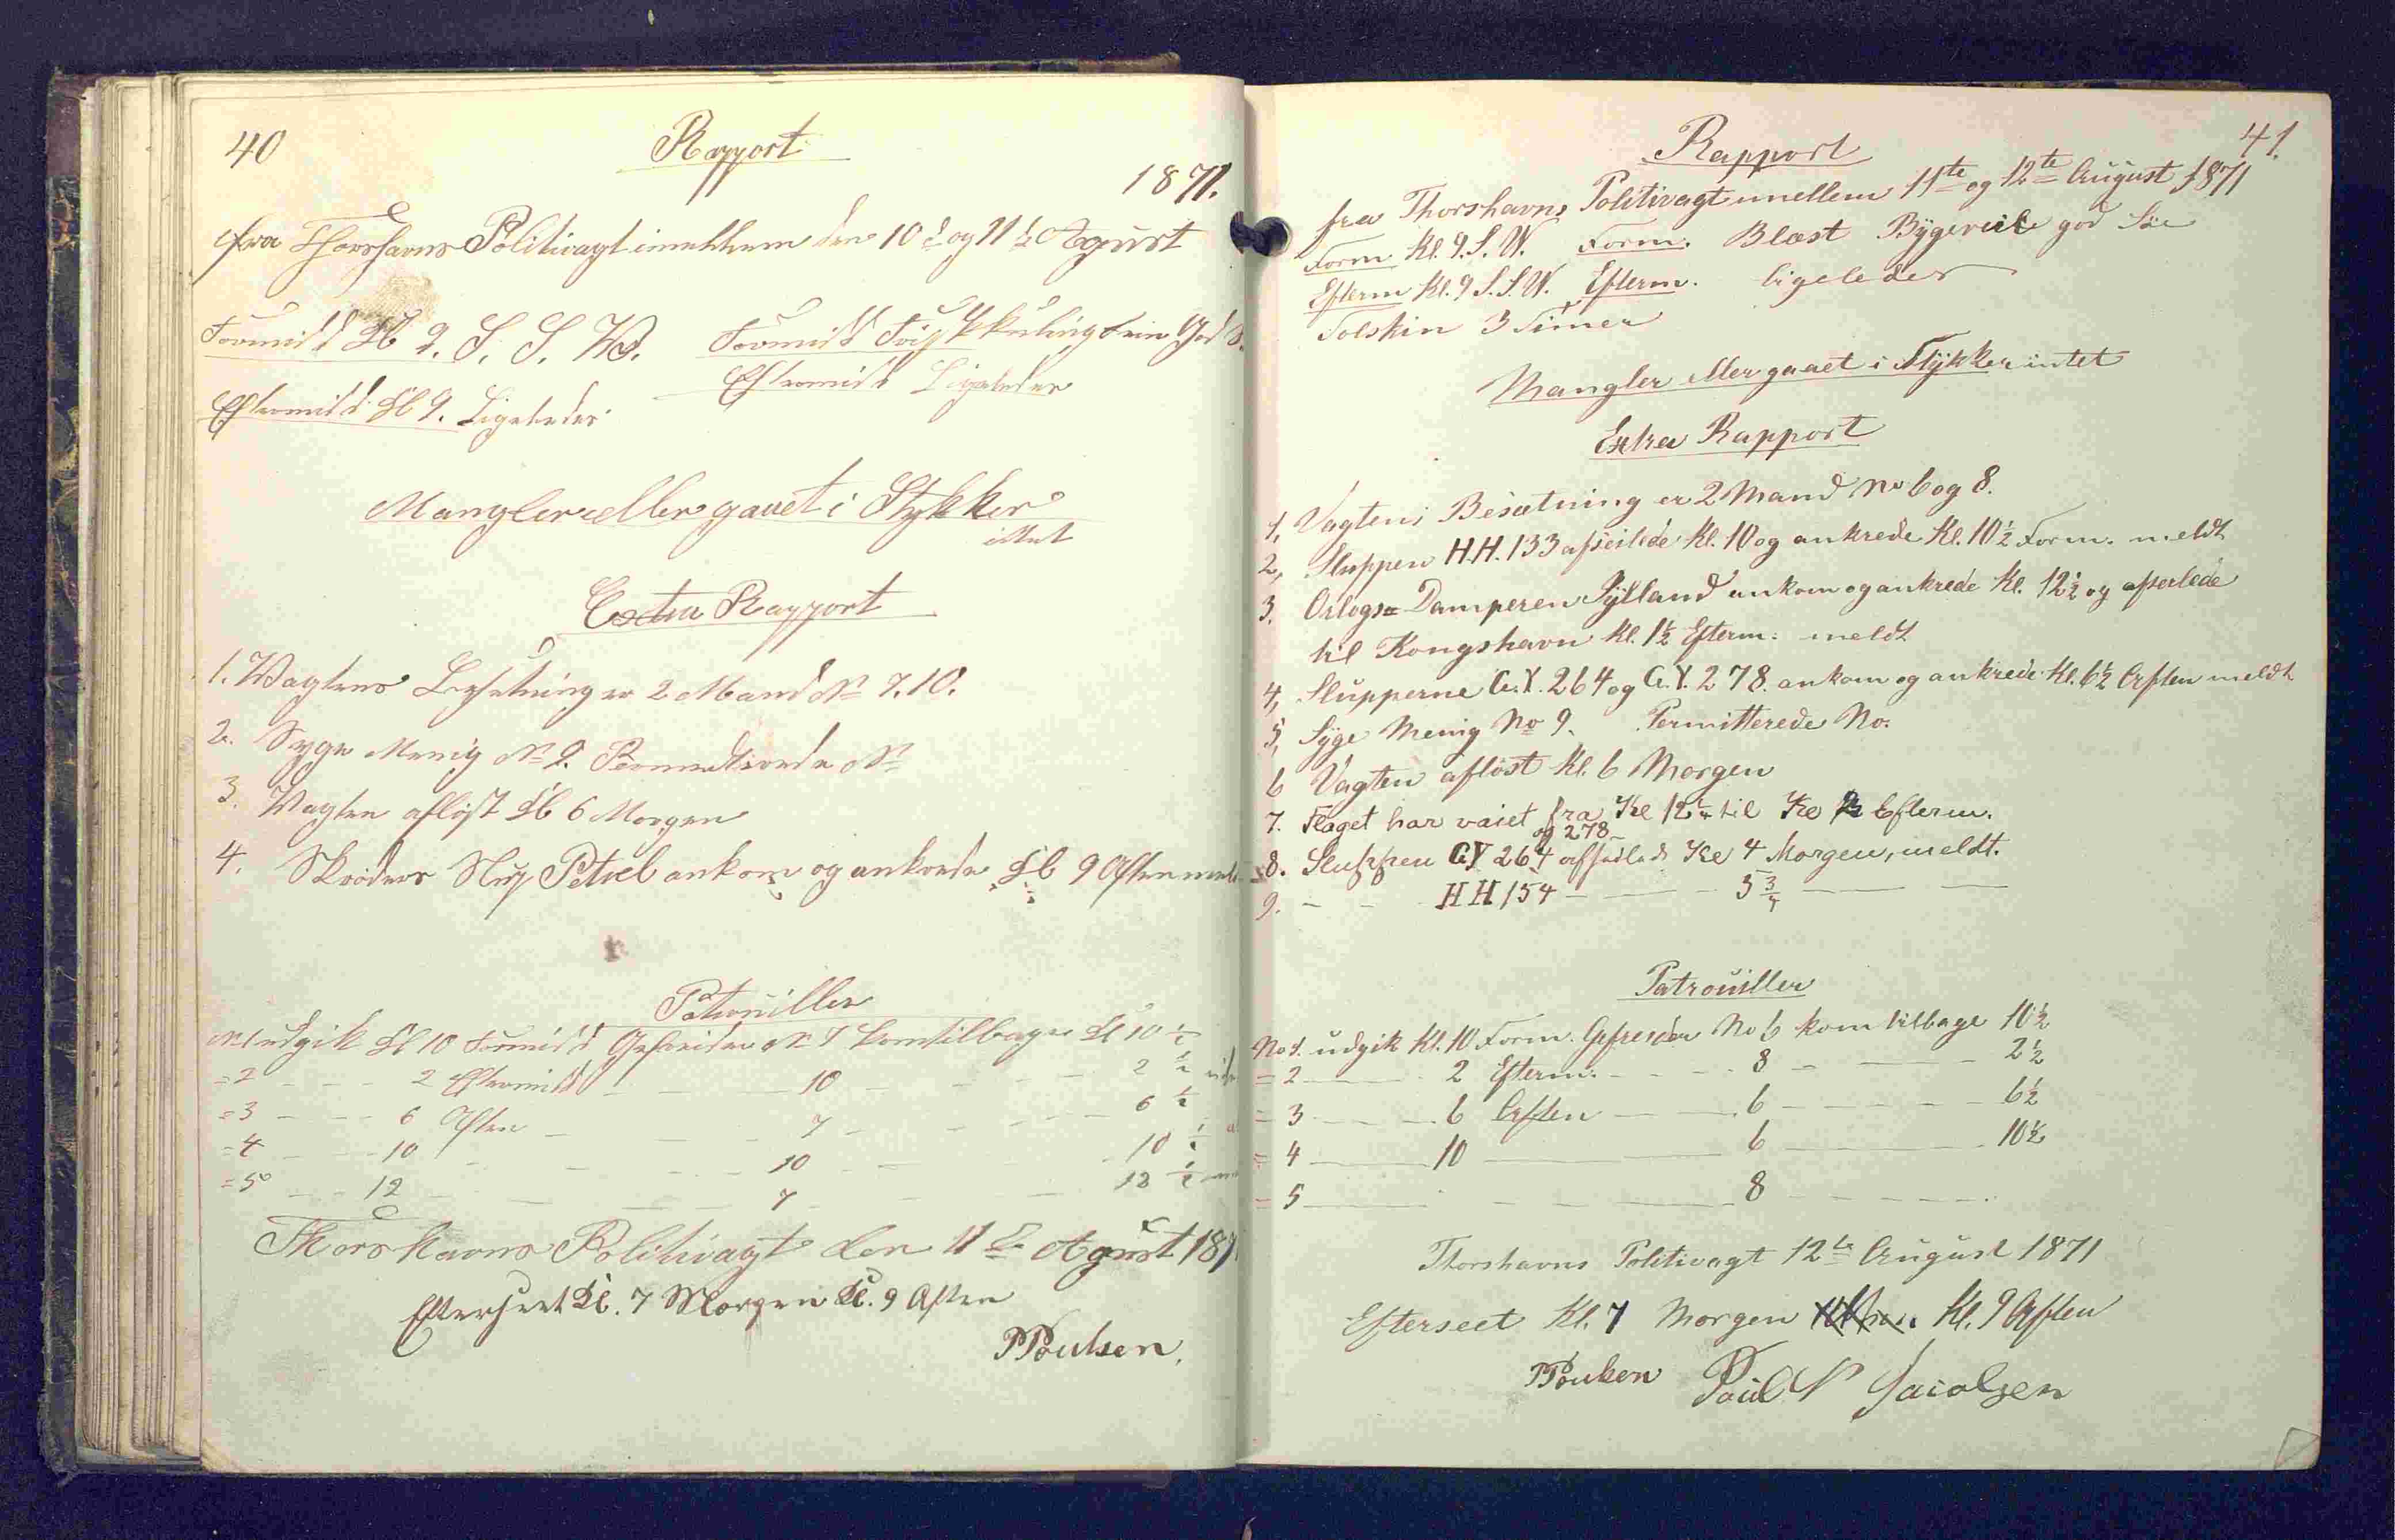 40
Rapport
1871.
fra Thorshavns Politivagt imellem den 10de og 11te August
Formidd Kl 9. S. S. W. Formidd Frisk Kuling
Eftermidd Kl 9. Ligeledes Eftermidd Ligeledes
Mangler eller gaaet i Stykker
intet
Extra Rapport
1. Wagtens Besetning er 2 Mand No 7. 10.
2. Syge Menig No 9. Permitterede No
3. Vagten afløst Kl 6 Morgen
4. Skröders Slup Petrel ankom og ankrede Kl 9 Aften
Patrouiller
No 1 udgik Kl 10 Formidd Gefreider No 7 kom tilbage Kl 10 ½
=2 - - - 2 Eftermidd - - 10 - - - 2 ½
=3 - - - 6 Aften - - 7 - - - 6 ½
=4 - - - 10 - - - 10 - - - 10 ½
=5 - - 12 - - - 7 - - - 12 ½
Thorshavns Politivagt den 11te Agust 187
Efterseet Kl. 7 Morgen Kl. 9 Aften
PPoulsen.
41.
Rapport
fra Thorshavns Politivagt imellem 11te og 12te August 1871
Form Kl. 9. S. W. Form. Blæst Bygeveir god Sie
Efterm Kl. 9 S. S. W. Efterm. ligeledes
Solskin 3 Timer
Mangler eller gaaet i Stykker intet
Extra Rapport
1, Vagtens Besætning er 2 Mand No 6 og 8.
2, Sluppen H.H. 133 afseilede Kl. 10 og ankrede Kl. 10½ Form. meldt
3. Orlogs= Damperen Jylland ankom og ankrede Kl. 12½ og afseilede
til Kongshavn Kl. 1½ Efterm: meldt
4, Slupperne G.Y. 264 og G.Y. 278. ankom og ankrede Kl. 6½ Aften meldt
5, Syge Menig No 9. Permitterede No.
6 Vagten afløst Kl. 6 Morgen
7. Flaget har vaiet fra Kl 12¼ til Kl 2 Efterm.
og 278
8. Sluppen GY 264 affeilede Kl 4 Morgen, meldt.
9. - - - HH 154 - - - 5 ¾ - - -
Patrouiller
No 1. udgik Kl. 10 Form. Gefreider No 6 kom tilbage 10½
= 2 - - - 2 Efterm. - - - 8 - - - 2½
= 3 - - - 6 Aften - - - 6 - - - 6½
= 4 - - - 10 - - - 6 - - - 10½
= 5 - - - 8 - - -
Thorshavns Politivagt 12te August 1871
Efterseet Kl. 7 Morgen Kl. 9 Aften
PPoulsen Poul N Jacobsen